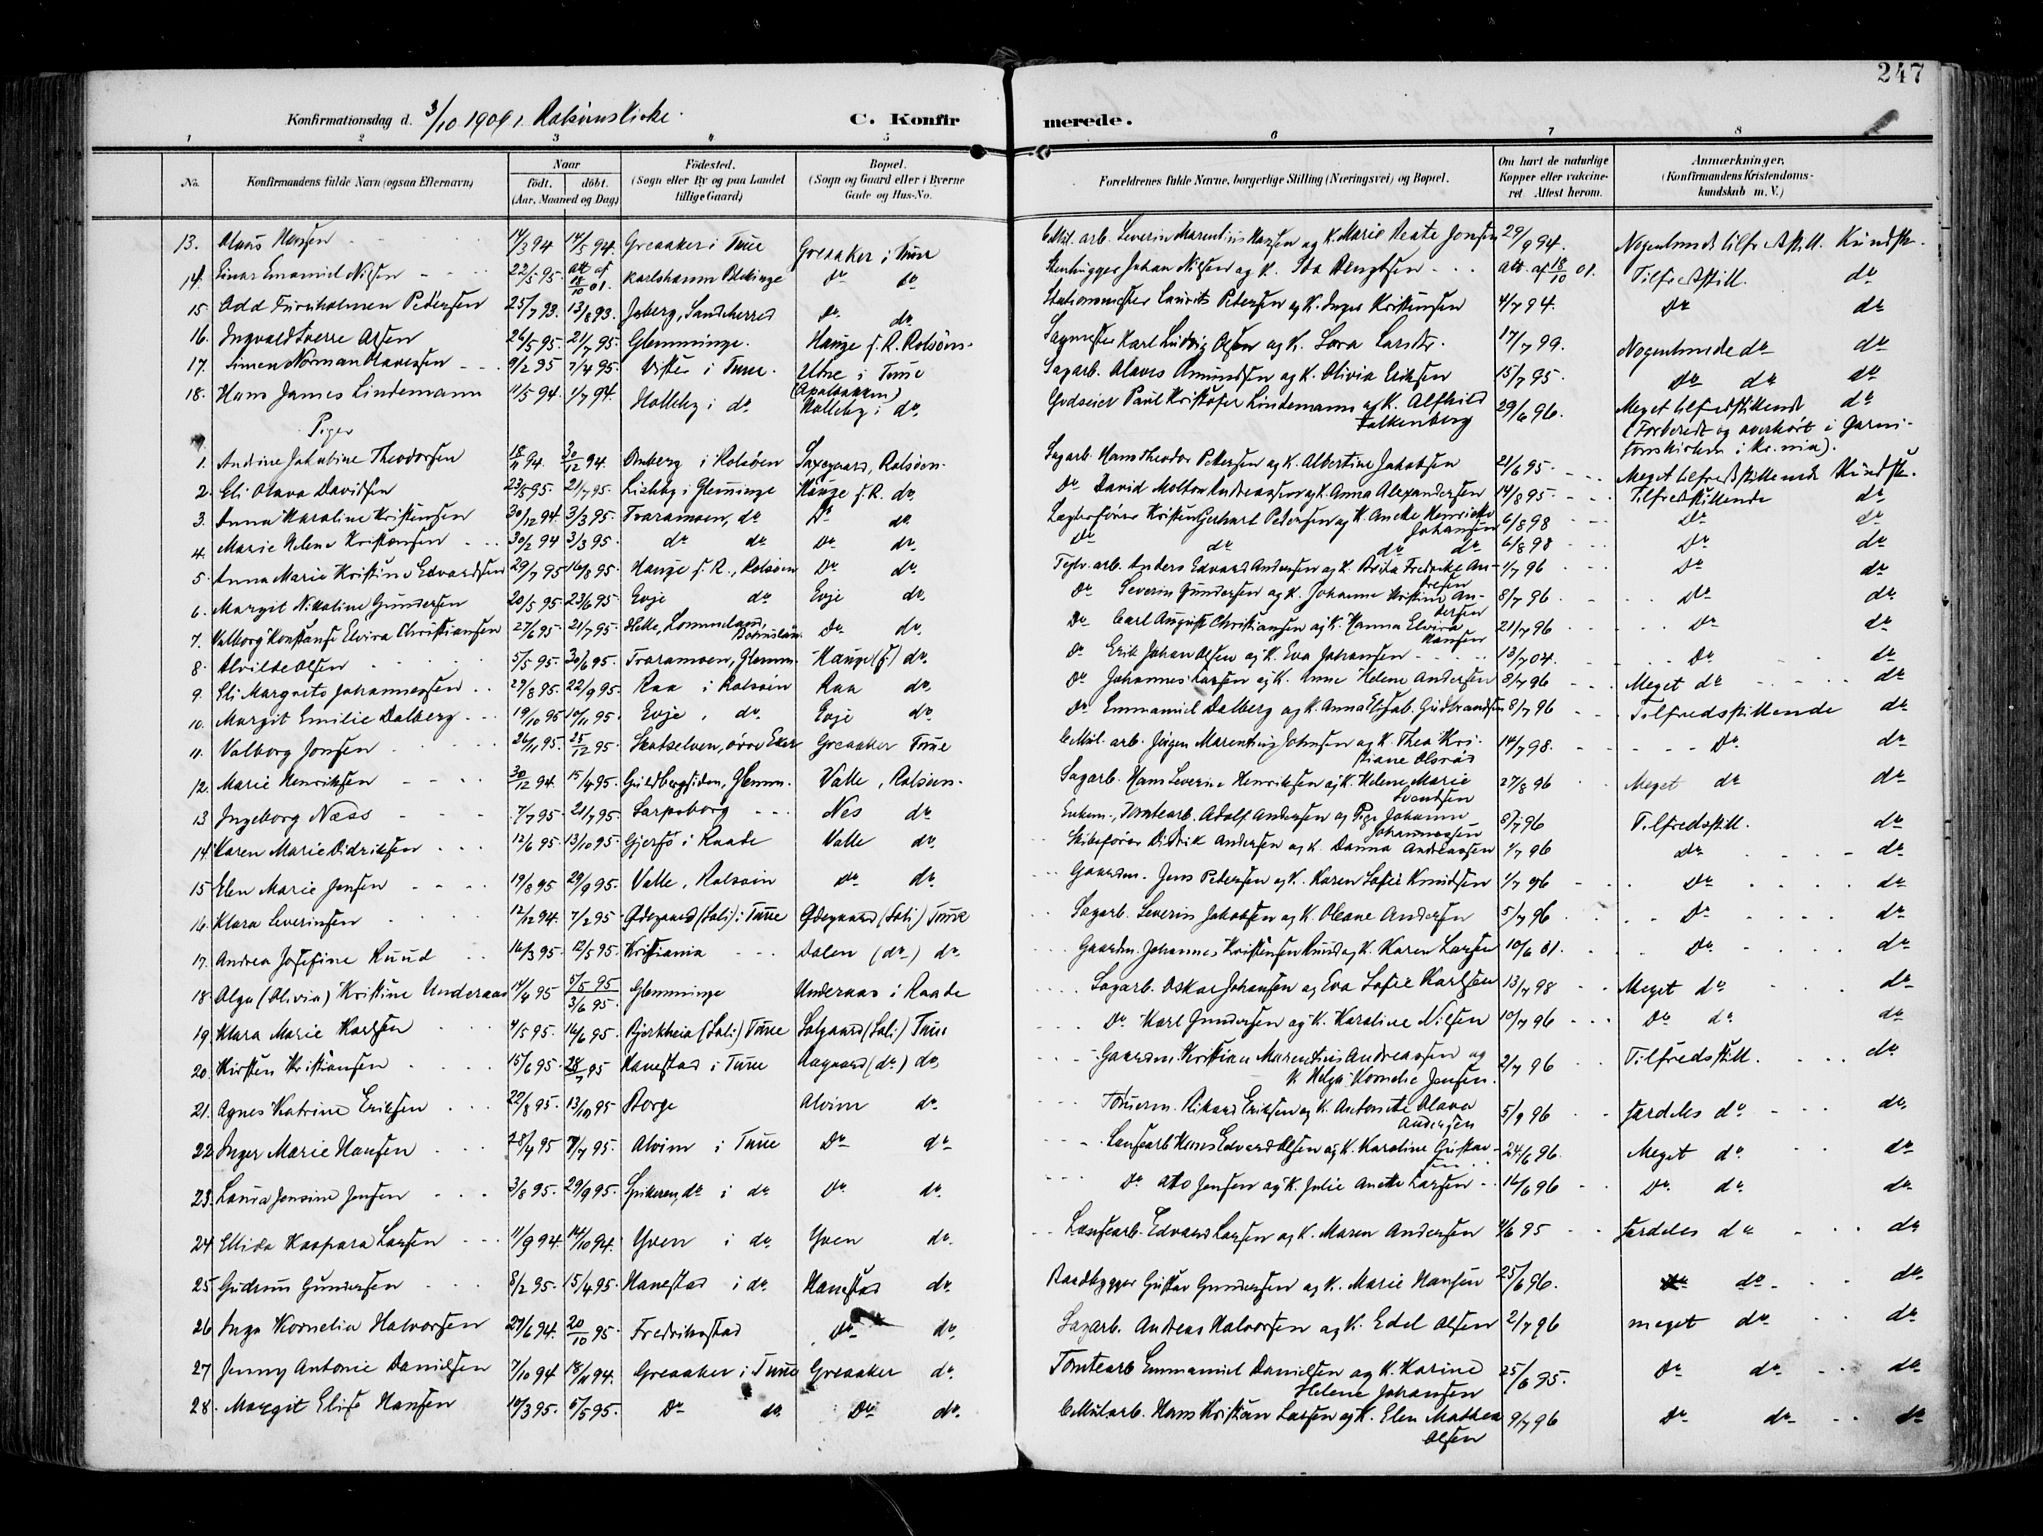 247
Konfirmationsdag d. 3/10 1909 i Rolsøens Kirke.
C. Konfirmerede.
1 2 3 4 5 6 7 8
No. Konfirmandens fulde Navn (ogsaa Efternavn) Naar født. døbt. (Aar, Maaned og Dag) Fødested. (Sogn eller By og paa Landet tillige Gaard) Bopæl. (Sogn og Gaard eller i Byerne Gade og Hus-No. Forældrenes fulde Navne, borgerlige Stilling (Næringsvei) og Bopæl. Om havt de naturlige Kopper eller vakcineret. Attest herom. Anmærkninger. (Konfirmandens Kristendomskundskab m. V.)
13. Hansen 14/3 94 14/5 94. Greaaker i Tune Greaaker i Tune Cellul. arb. Severin Marentius Hansen og K. Marie Beate Jensen 29/9 94. Nogenlunde tilfredsstill. Kundsk.
14. Einar Emanuel Nilsen 22/5 95. att. af 18/10 01. Karlshamn Blekinge do do Stenhugger Johan Nilsen og K. Ida Bengtsen att. af 18/10 01. Tilfredsstill. do
15 Odd Furuholmen Pedersen 25/7 93. 13/8 93. Joberg, Sandeherred Do. do. Stationsmester Laurits Petersen og K. Inger Kristensen 4/7 94. Do do
16. Ingvald Sverre Olsen 26/5 95. 21/7 95. Glemminge. Hauge f. R. Rolsøen. Sagmester Karl Ludvig Olsen og K. Lora Larsdr. 17/7 99. Nogenlunde do do
17. Simen Norman Olavesen 9/2 95 7/4 95. Vister i Tune. Utne i Tune (Apalhaugen) Sagarb. Olaves Amundsen og K. Olivia Eriksen 15/7 95. Do do do
18. Hans James Lindemann 11/5 94. 1/7 94. Holleby i do Holleby i do. Godseier Paul Kristofer Lindemann og K. Alfhild Falkenberg 29/6 96. Meget tilfredsstillende do
(Forberedt og overhørt i Garnisonskirken i Kr.nia).
Piger
1. Andrine Jakobine Theodorsen 18/11 94. 30/12 94. Omberg i Rolsøen Saxegaard, Rolsøen. Sagarb. Hans Theodor Pettersen og K. Albertine Jakobsen 21/6 95. Meget tilfredsstillende Kundsk.
2. Eli Olava Davidsen 23/5 95. 21/7 95. Lisleby i Glemminge Hauge f. R. do. Do David Molton Andreassen og K. Anna Alexandersen 14/8 95. Tilfredsstillende do
3. Anna Karoline Kristensen 30/12 94. 3/3 95. Traramoen, do Do do. Lagterfører Kristen Gerhart Petersen og K. Anette Henrikke Johansen 6/8 98 Do do
4. Marie Helene Kristensen 30/12 94 3/3 95. do do Do do. Do do do do 6/8 98 Do do
5. Anna Marie Kristine Edvardsen 29/7 95 16/8 95. Hauge f. R., Rolsøen Do do. Teglv. arb. Anders Edvard Andersen og K. Brita Fredrikke Andresen 1/7 96 Do do
6. Margit Nikoline Gundersen 20/5 95 23/6 95 Evje do Evje do. Do Severin Gundersen og K. Johanne Kristine Andersen 8/7 96 Do do
7. Valborg Konstanse Elvira Christiansen 27/6 95. 21/7 95. Hette, Lommeland, Bohuslän Do do. Do Carl August Christiansen og K. Hanna Elvira Hansen 21/7 96 Do do
8 Alvilde Olsen 5/5 95. 30/6 95. Traramoen, Glemm. Hauge (f) do. Do Erik Johan Olsen og K. Eva Johansen 13/7 04. Do do
9. Eli Margrete Johannessen 29/8 95. 22/9 95. Raa i Rolsøen Raa do. Do Johannes Larsen og K. Anne Helene Andersen 8/7 96 Meget do do
10. Margit Emilie Dalberg 19/10 95 10/11 95. Evje, do. Evje do. Do Emmanuel Dalberg og K. Anna Elisab. Gudbrandsen 8/7 96 Tilfredsstillende do
11. Valborg Jensen 26/11 95. 25/12 95. Skotselven, øvre Eker Greaaker Tune Cellul. arb. Jørgen Marentius Johnsen og K. Thea Kristiane Olsrød 14/7 98. Do. do
12. Marie Henriksen 30/12 94. 15/4 95. Guldbergsiden, Glemm. Valle, Rolsøen. Sagarb. Hans Severin Henriksen og K. Helene Marie Svendsen 27/8 96 Meget do do
13 Ingeborg Næss 7/7 95. 21/7 95. Sarpsborg Nes do Enkem., Tomtearb. Adolf Andersen og Pige Johanne Johannessen 8/7 96 Tilfredsstill. do
14. Karen Marie Didriksen 12/6 95. 13/10 95. Gjersø i Raade Valle do. Skibsfører Didrik Andersen og K. Danna Andreassen 1/7 96 do do
15 Elen Marie Jensen 19/8 95 29/9 95. Valle, Rolsøen Do do. Gaardm. Jens Petersen og K. Karen Sofie Knudsen 1/7 96 Do do
16. Klara Severinsen 12/12 94. 7/2 95. Ødegaard (Soli) i Tune Ødegaard (Soli) Tune Sagarb. Severin Jakobsen og K. Oleane Andersen 5/7 96 Do do
17. Andrea Josefine Ruud 16/3 95. 12/5 95. Kristiania Dalen (do) do Gaardm. Johannes Kristensen Ruud og K. Karen Larsen 10/6 01. Do. do
18 Olga (Olivia) Kristine Undernaas 14/4 95 5/5 95 3/6 95. Glemminge Undernaas i Raade Sagarb. Oskar Johansen og Eva Sofie Karlsen 13/7 98 Meget do do
19 Klara Marie Karlsen 4/5 95. 16/6 95. Bjerkheia (Soli) Tune Solgaard (Soli) Tune Do. Karl Gundersen og K. Karoline Nilsen 10/7 96 Do do do
20. Kirsten Kristiansen 15/6 95. 28/7 95 Hanestad i Tune Aagaard (do) do. Gaardm. Kristian Marentius Andreassen og K Helga Kornelie Jensen. 2/7 96 Tilfredsstill. do
21. Agnes Katrine Eriksen 22/8 95. 13/10 95 Borge Alvim do. Tømmerm. Rikard Eriksen og K. Antonette Olava Andersen 5/9 96 Særdeles do do
22 Inger Marie Hansen 28/4 95 7/7 95. Alvim i Tune Do do. Lensearb. Hans Edvard Olsen og K. Karoline Gustavsen 24/6 96. Meget do do
23. Laura Jensine Jensen 3/8 95. 29/9 95. Spikeren, do i do Do. do. Do Otto Jensen og K. Julie Anette Larsen 16/6 96 Do do do
24 Ellida Kaspara Larsen 11/9 94. 14/10 94. Yven i do. Yven do. Lensearb. Edvard Larsen og K. Maren Andersen 4/6 95 Særdeles do do
25. Gudrun Gundersen 8/2 95. 15/4 95. Hanestad i do Hanestad do. Baadbygger Gustav Gundersen og K. Marie Hansen 25/6 96. Do do do
26 Inga Kornelia Halvorsen 27/6 94. 20/10 95. Fredrikstad Do do. Sagarb. Andreas Halvorsen og K. Edel Olsen 2/7 96 meget do do
27 Jenny Antonie Danielsen 7/10 94 18/11 94. Greaaker i Tune Greaaker do. Tomtearb Emmanuel Danielsen og K. Karine Helene Johansen 25/6 95. Do do do
28. Margit Elise Hansen 10/3 95. 5/5 95. Do do. Do do. Cellul arb. Hans Kristian Larsen og K. Elen Mathea Olsen 9/7 96 Do do do